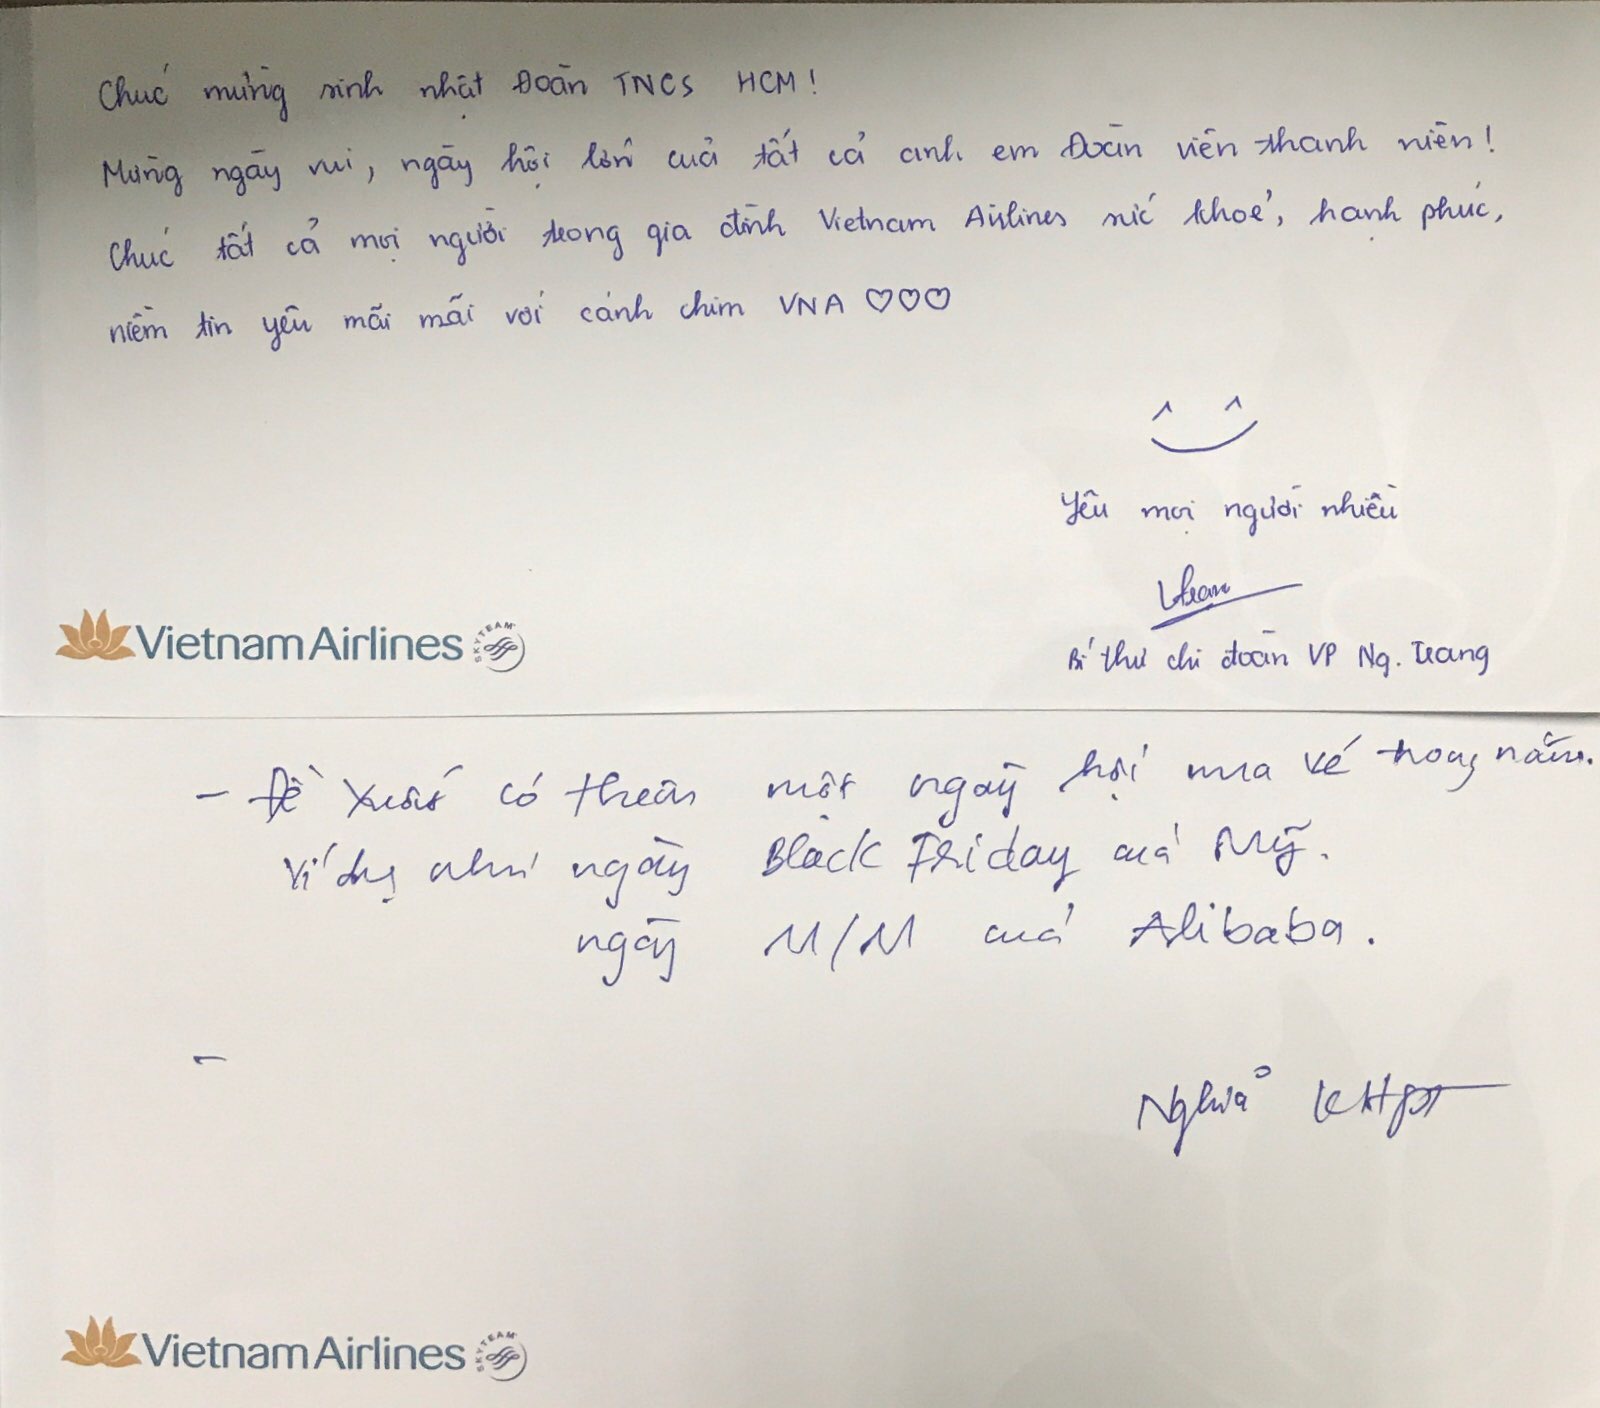 Chúc mừng sinh nhật Đoàn TNCS HCM!
Mừng ngày vui, ngày hội lớn của tất cả anh em Đoàn viên thanh niên!
Chúc tất cả mọi người trong gia đình Vietnam Airlines sức khoẻ, hạnh phúc,
niềm tin yêu mãi mãi với cánh chim VNA ♡♡♡
Yêu mọi người nhiều
Bí thư chi đoàn VP Ng. Trang
Vietnam Airlines SKYTEAM
- Đề xuất có thêm một ngày hội mua vé trong năm.
Ví dụ như ngày Black Friday của Mỹ.
ngày 11/11 của Alibaba.
-
Nghĩa
Vietnam Airlines SKYTEAM